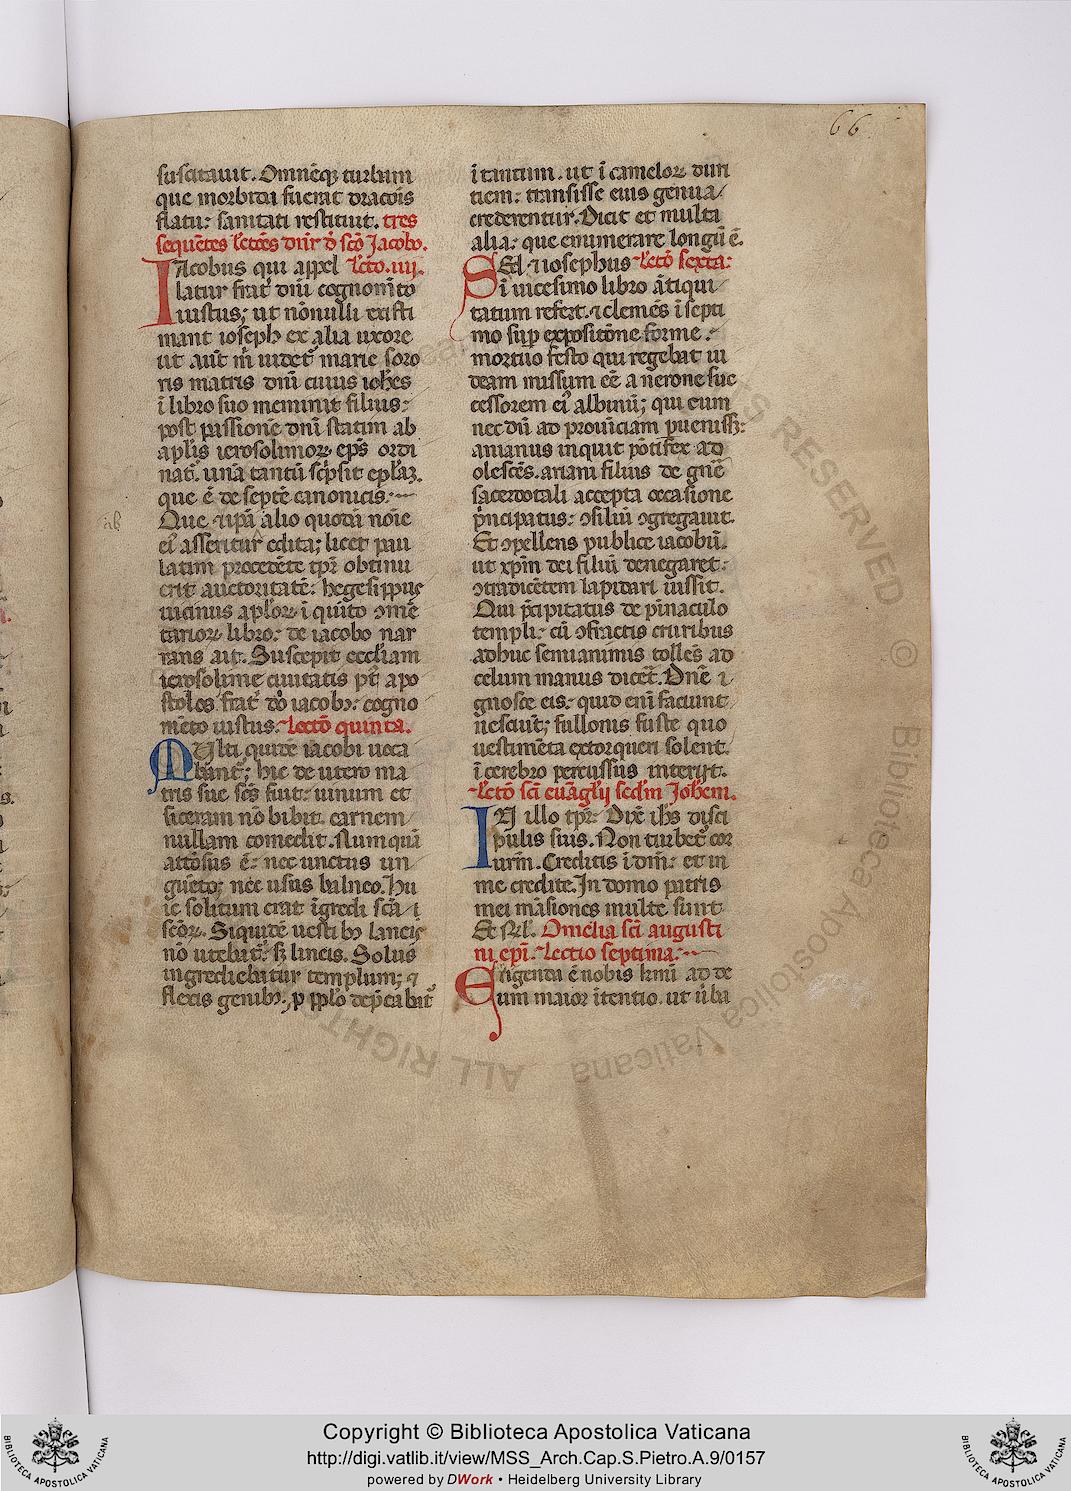 66
suscitauit. Omnēqꝫ turbam
que morbida fuerat dracōis
flatu: sanitati restituit. tres
sequētes lectōes dn̄r ď sc̄o Jacobo.
IAcobus qui appel lect̄o. iiij.
latur frat̄ dn̄i cognomīto
iustus; ut nōnulli existi
mant ioseph ex alia uxore
ut aut̄ m̄ uidet᷑ marie soro
ris matris dn̄i cuius ioh̄es
ī libro suo meminit filius:
post passionē dn̄i statim ab
aplīs ierosolimoꝝ ep̄s ordi
nat᷑. unā tantū scͥpsit epl̄aꝫ.
que ē de septē canonicis.
Que ⁊ ip̄a alio quodā nōie
eiꝰ asseritur edita; licet pau
latim procedēte tp̄r obtinu
erit auctoritatē: hegesippus
uicinus apl̄oꝝ ī quīto ↄmē
tarioꝝ libro: de iacobo nar
rans ait. Suscepit eccliam
ierosolime ciuitatis pꝰt apo
stolos frat̄ dn̄i iacobꝰ: cogno
mēto iustus. Lectō quinta.
MUlti quidē iacobi uoca
bant᷑; hic de utero ma
tris sue sc̄s fuit: uinum et
siceram nō bibit. carnem
nullam comedit. Numquā
attōsus ē: nec unctus un
guēto; nec usus balneo. Hu
ic solitum erat īgredi sc̄a ī
sc̄oꝝ. Siquidē uestibꝰ laneis
nō utebat᷑: sꝫ lineis. Solus
ingrediebatur templum; ⁊
flexis genibꝰ. ꝓ pp̄lo dep̄cabat᷑
ī tantum. ut ī cameloꝝ duri
tiem: transisse eius genua
crederentur. Dicit et multa
alia: que enumerare longū ē.
SEd ⁊ iosephus lectō sexta:
ī uicesimo libro ātiqui
tatum refert. ⁊ clemēs ī septi
mo sup expositōne forme:
mortuo festo qui regebat iu
deam missum eē a nerone suc
cessorem eiꝰ albinū; qui cum
nec dū ad prouīciam puenissꝫ:
ananus inquit pōtifex ad
olescēs. anani filius de gnē
sacerdotali accepta occasione
pͥncipatus: ↄsiliū ↄgregauit.
Et ↄpellens publice iacobū.
ut xp̄m dei filiū denegaret:
ↄtradicētem lapidari iussit.
Qui p̄cipitatus de pinaculo
templi: cū ↄfractis cruribus
adhuc semianimis tollēs ad
celum manus dicēt. Dn̄e i
gnosce eis: quid enī faciunt
nesciūt; fullonis fuste quo
uestimēta extorqueri solent.
ī cerebro percussus interijt.
lectō sc̄i euāglij sedm̄ Joh̄em.
IN illo tp̄r: Dixͥ ih̄s disci
pulis suis. Non turbet᷑ cor
urm̄. Creditis ī dm̄: et in
me credite. In domo patris
mei māsiones multe sunt
Et rel̄. Omelia sc̄i augusti
ni epī. Lectio septima.
ERigenda ē nobis frm̄i ad de
um maior ītentio. ut ūba
ALL RIGHTS RESERVED © Biblioteca Apostolica Vaticana
Copyright © Biblioteca Apostolica Vaticana
http://digi.vatlib.it/view/MSS_Arch.Cap.S.Pietro.A.9/0157
powered by DWork • Heidelberg University Library
BIBLIOTECA APOSTOLICA VATICANA
BIBLIOTECA APOSTOLICA VATICANA